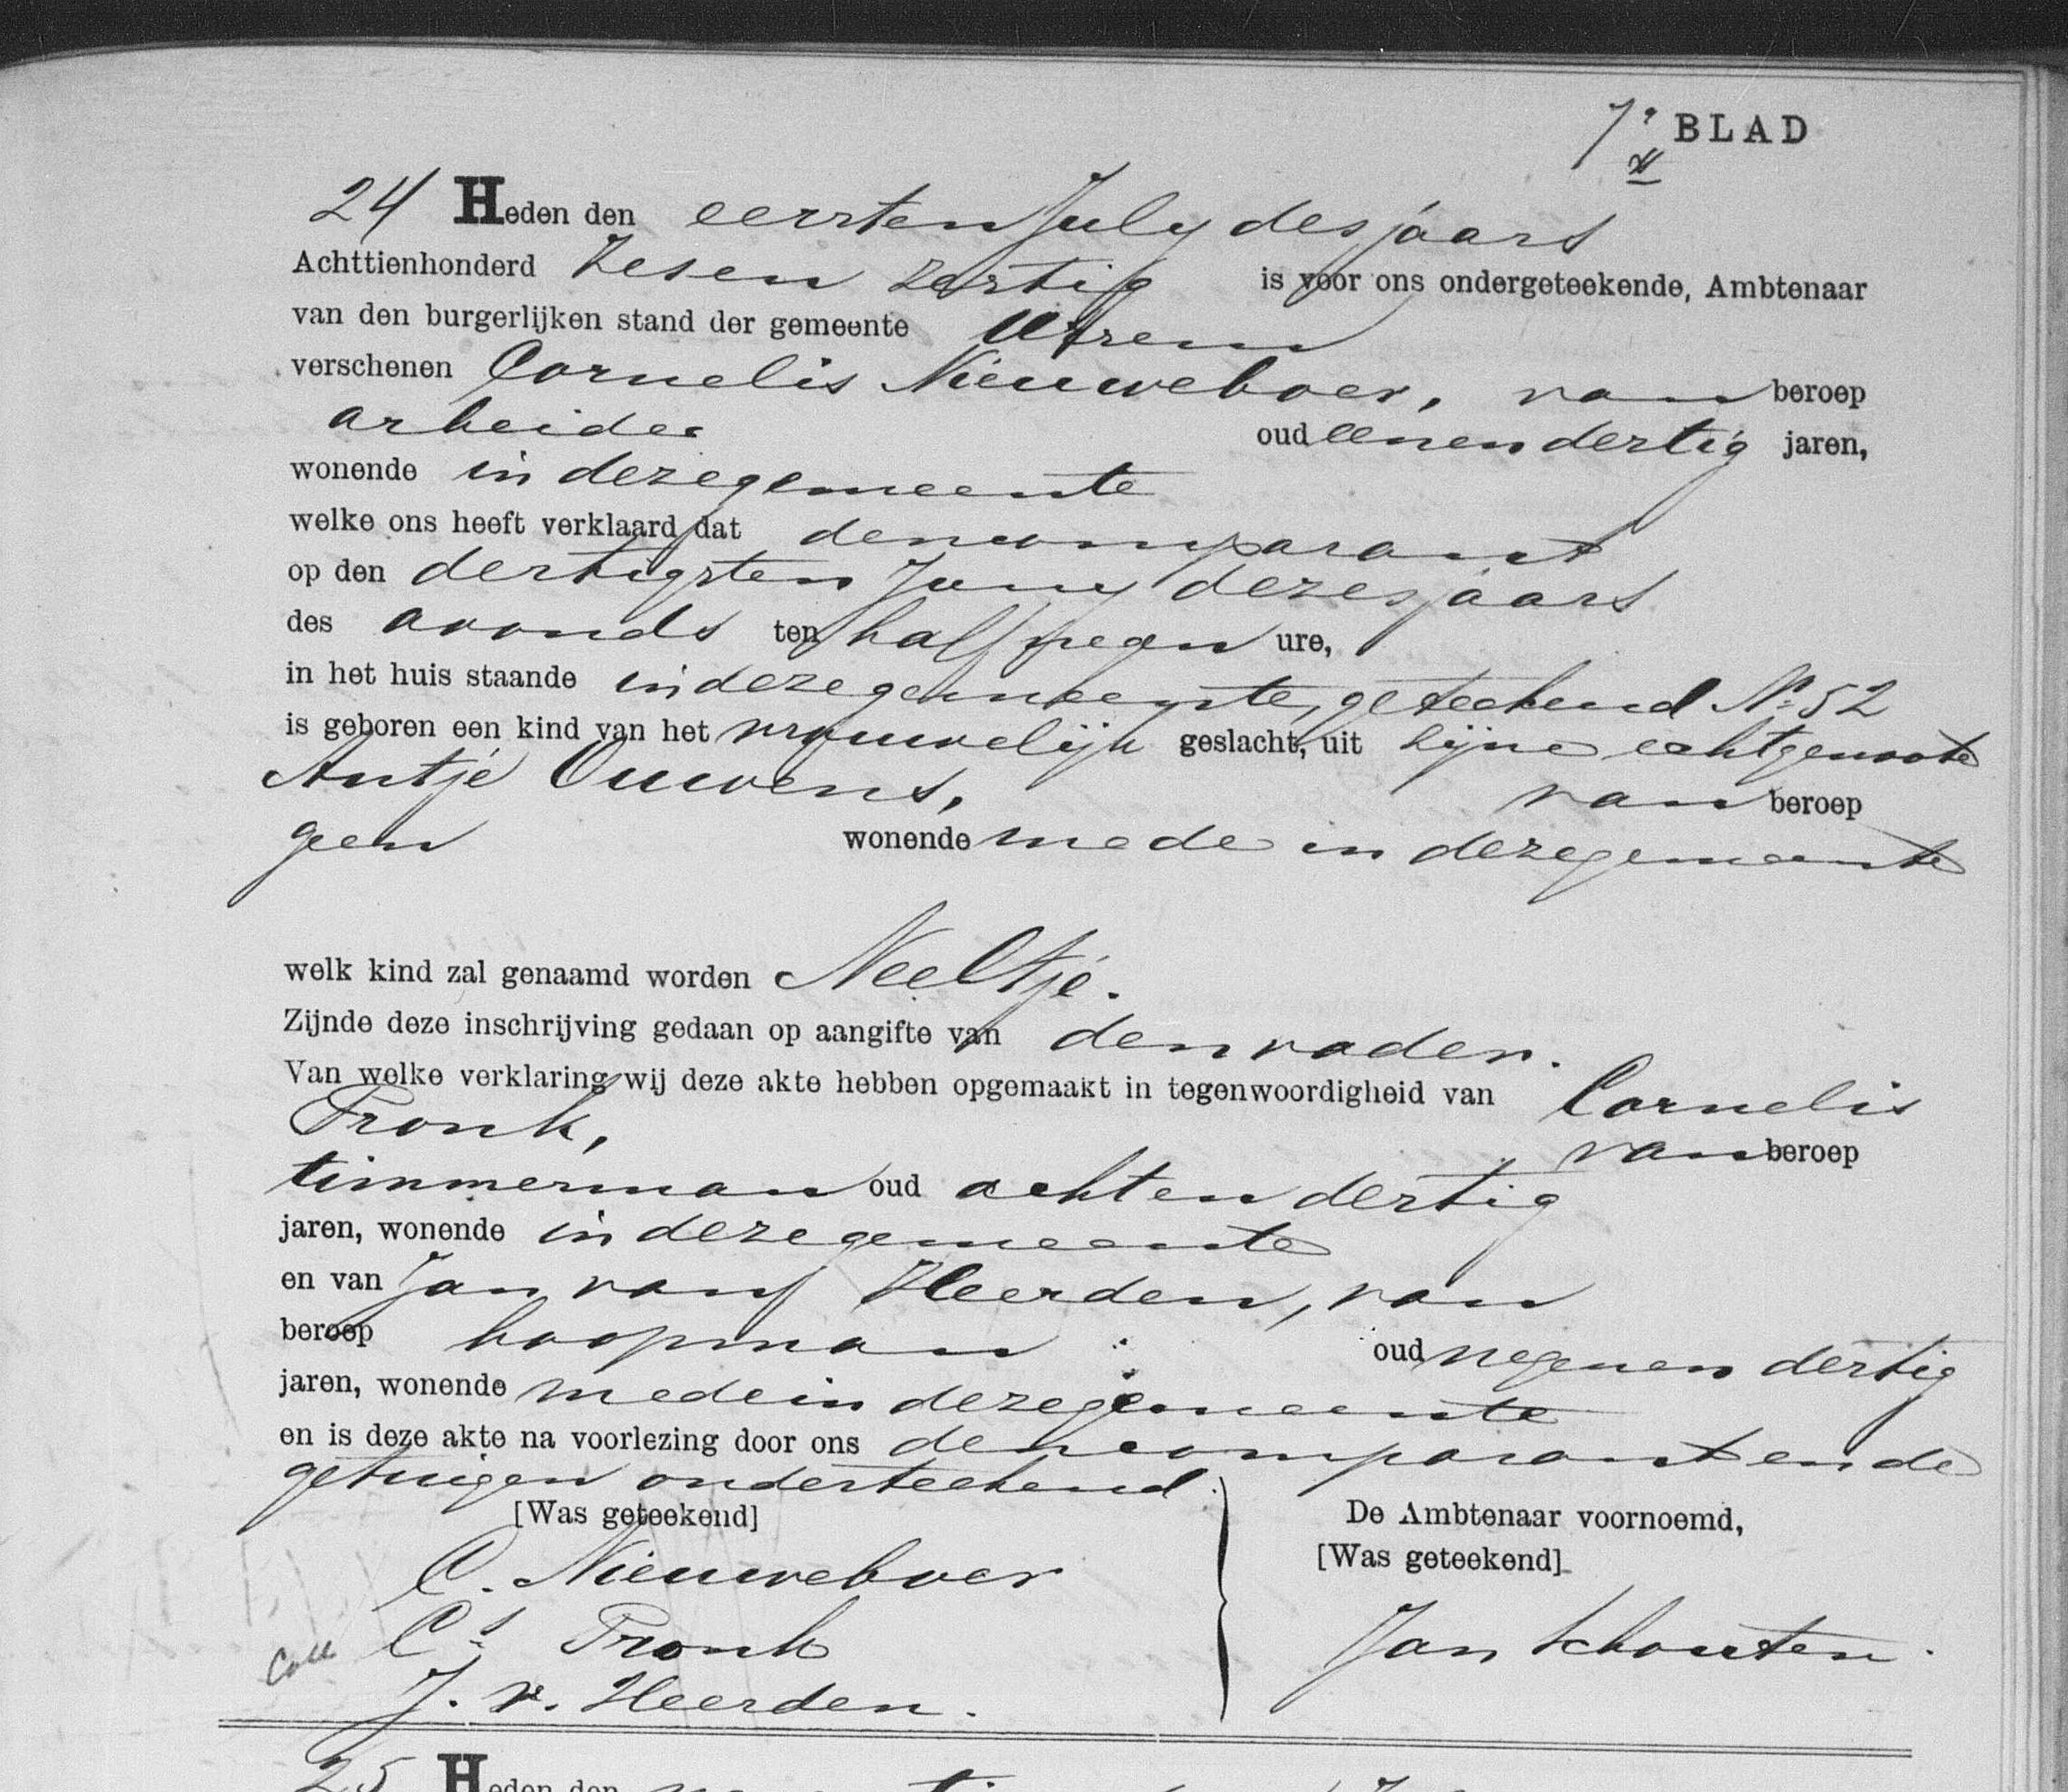 7e BLAD
24 Heden den eersten July des jaars
Achttienhonderd Zes en zestig is voor ons ondergeteekende, Ambtenaar
van den burgerlijken stand der gemeente Ursem
verschenen Cornelis Nieuweboer, van beroep
arbeider oud een en dertig jaren,
wonende in deze gemeente
welke ons heeft verklaard dat den comparant
op den dertigsten Juny dezes jaars
des avonds ten half negen ure,
in het huis staande in deze gemeente, geteekend No. 52
is geboren een kind van het vrouwelijk geslacht, uit zijne echtgenoote
Antje Ouwens, van beroep
geen wonende mede in deze gemeente
welk kind zal genaamd worden Neeltje.
Zijnde deze inschrijving gedaan op aangifte van den vader.
Van welke verklaring wij deze akte hebben opgemaakt in tegenwoordigheid van Cornelis
Pronk, van beroep
timmerman oud acht en dertig
jaren, wonende in deze gemeente
en van Jan van Heerden, van
beroep koopman oud negen en dertig
jaren, wonende mede in deze gemeente
en is deze akte na voorlezing door ons den comparant en de
getuigen onderteekend.
[Was geteekend] De Ambtenaar voornoemd,
C. Nieuweboer [Was geteekend]
Cs. Pronk Jan Schouten.
Coll
J. v. Heerden.
25 Heden den